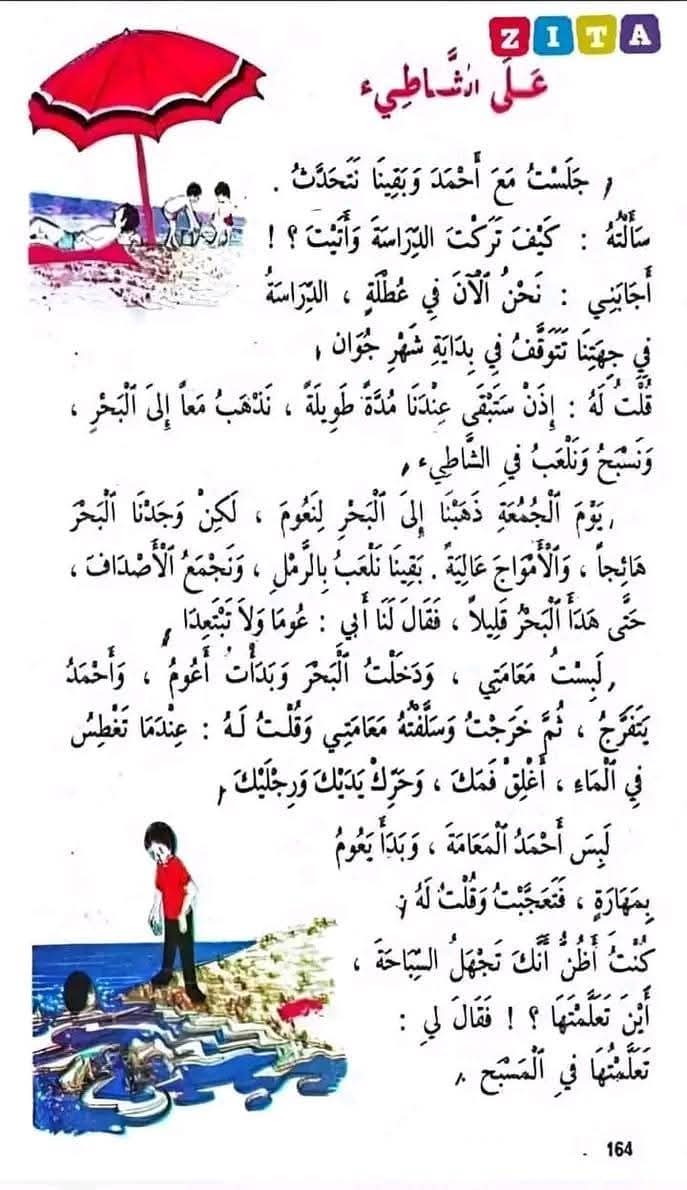 ZITA
عَلَى الشَّاطِيء
جَلَسْتُ مَعَ أَحْمَدَ وَبَقِينَا نَتَحَدَّثُ .
سَأَلْتُهُ : كَيْفَ تَرَكْتَ الدِّرَاسَةَ وَأَتَيْتَ ؟ !
أَجَابَنِي : نَحْنُ الْآنَ فِي عُطْلَةٍ ، الدِّرَاسَةُ
فِي جِهَتِنَا تَتَوَقَّفُ فِي بِدَايَةِ شَهْرِ جُوَان ،
قُلْتُ لَهُ : إِذَنْ سَتَبْقَى عِنْدَنَا مُدَّةً طَوِيلَةً ، نَذْهَبُ مَعاً إِلَى الْبَحْرِ ،
وَنَسْبَحُ وَنَلْعَبُ فِي الشَّاطِيء ,
يَوْمَ الْجُمُعَةِ ذَهَبْنَا إِلَى الْبَحْرِ لِنَعُومَ ، لَكِنْ وَجَدْنَا الْبَحْرَ
هَائِجاً ، وَالْأَمْوَاجَ عَالِيَةً . بَقِينَا نَلْعَبُ بِالرَّمْلِ ، وَنَجْمَعُ الْأَصْدَافَ ،
حَتَّى هَدَأَ الْبَحْرُ قَلِيلاً ، فَقَالَ لَنَا أَبِي : عُومَا وَلاَ تَبْتَعِدَا ,
لَبِسْتُ مَعَامَتِي ، وَدَخَلْتُ الْبَحْرَ وَبَدَأْتُ أَعُومُ ، وَأَحْمَدُ
يَتَفَرَّجُ ، ثُمَّ خَرَجْتُ وَسَلَّفْتُهُ مَعَامَتِي وَقُلْتُ لَهُ : عِنْدَمَا تَغْطِسُ
فِي الْمَاءِ ، أَغْلِقْ فَمَكَ ، وَحَرِّكْ يَدَيْكَ وَرِجْلَيْكَ ,
لَبِسَ أَحْمَدُ الْمَعَامَةَ ، وَبَدَأَ يَعُومُ
بِمَهَارَةٍ ، فَتَعَجَّبْتُ وَقُلْتُ لَهُ :
كُنْتُ أَظُنُّ أَنَّكَ تَجْهَلُ السِّبَاحَةَ ،
أَيْنَ تَعَلَّمْتَهَا ؟ ! فَقَالَ لِي :
تَعَلَّمْتُهَا فِي الْمَسْبَحِ ,
164